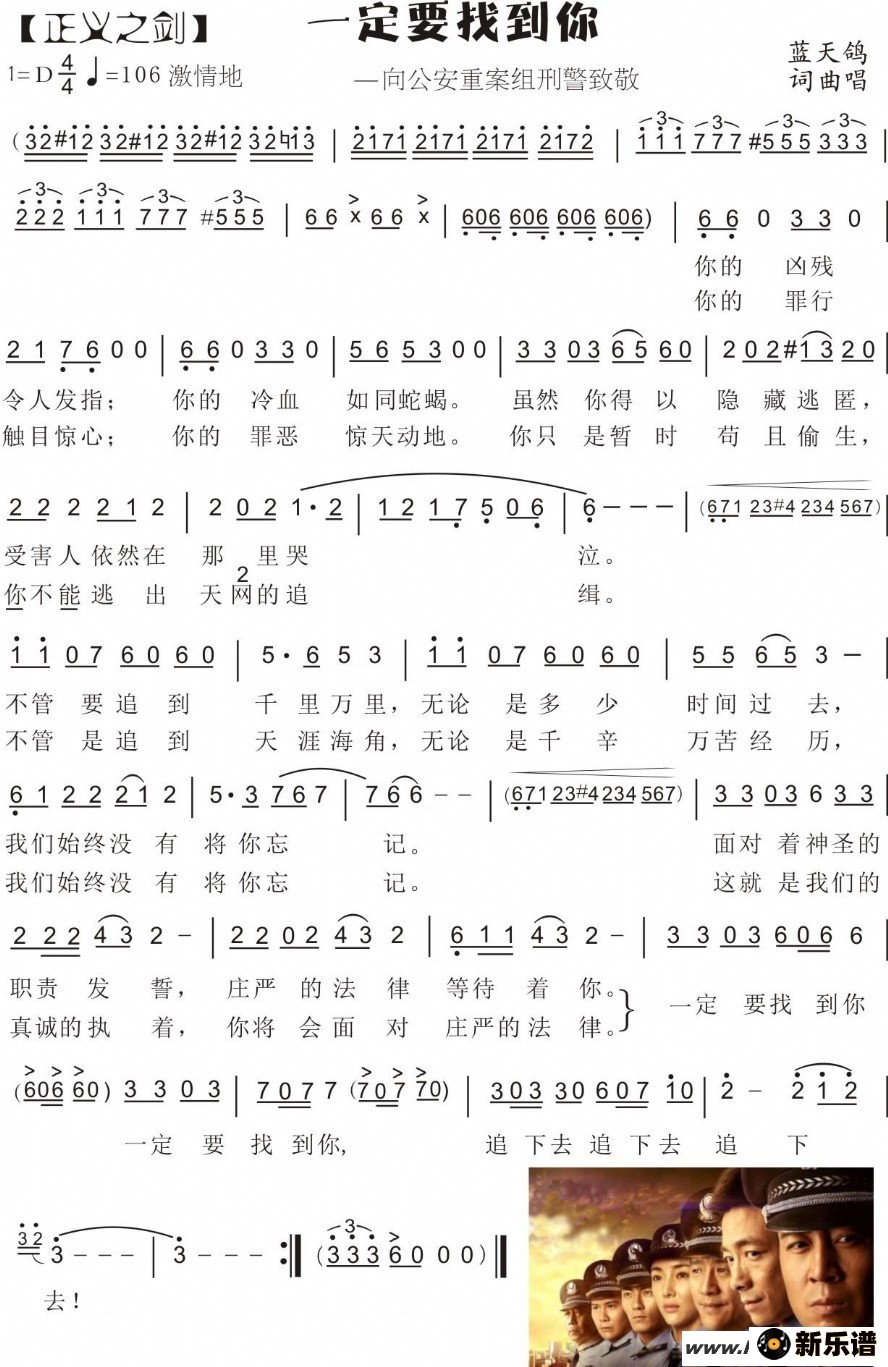 【正义之剑】 一定要找到你
1=D 4/4 ♩=106 激情地 —向公安重案组刑警致敬 蓝天鸽
词曲唱
(32#12 32#12 32#12 32♮13 | 2171 2171 2171 2172 | 111 777 #555 333 |
222 111 777 #555 | 66 x 66 x | 606 606 606 606) | 66 0 33 0 |
你的 凶残
你的 罪行
21 76 0 0 | 66 0 33 0 | 56 53 0 0 | 33 03 65 60 | 2 02 #13 20 |
令人发指； 你的 冷血 如同蛇蝎。 虽然 你得 以 隐 藏 逃 匿，
触目惊心； 你的 罪恶 惊天动地。 你只 是暂 时 苟 且 偷 生，
22 2 21 2 | 2 02 1·2 | 12 17 5 06 | 6 — — — | (671 23#4 234 567) |
受害 人 依然在 那 里哭 泣。
2
你不 能 逃 出 天 网的追 缉。
11 07 60 60 | 5· 6 5 3 | 11 07 60 60 | 55 65 3 — |
不管 要 追 到 千 里 万 里， 无论 是 多 少 时间 过 去，
不管 是 追 到 天 涯 海 角， 无论 是 千 辛 万苦 经 历，
61 22 21 2 | 5·3 767 | 766 - - | (671 23#4 234 567) | 33 03 6 33 |
我们始终没 有 将 你忘 记。 面对 着神圣的
我们始终没 有 将 你忘 记。 这就 是我们的
2 22 43 2 - | 22 02 43 2 | 6 11 43 2 - | 33 03 606 6
职责 发 誓， 庄严 的 法 律 等待 着 你。} 一定 要找 到你
真诚的执 着， 你将 会 面 对 庄严的 法 律。
(606 60) 33 03 | 707 7 (707 70) | 303 30 607 10 | 2 - 212
一定 要 找 到你, 追 下去 追 下去 追 下
32 3 - - - | 3 - - - :| (333 6 0 0 0)
去！
新乐谱